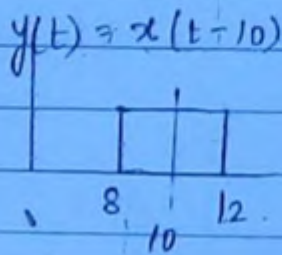 y(t) = x(t-10)
8 12.
10